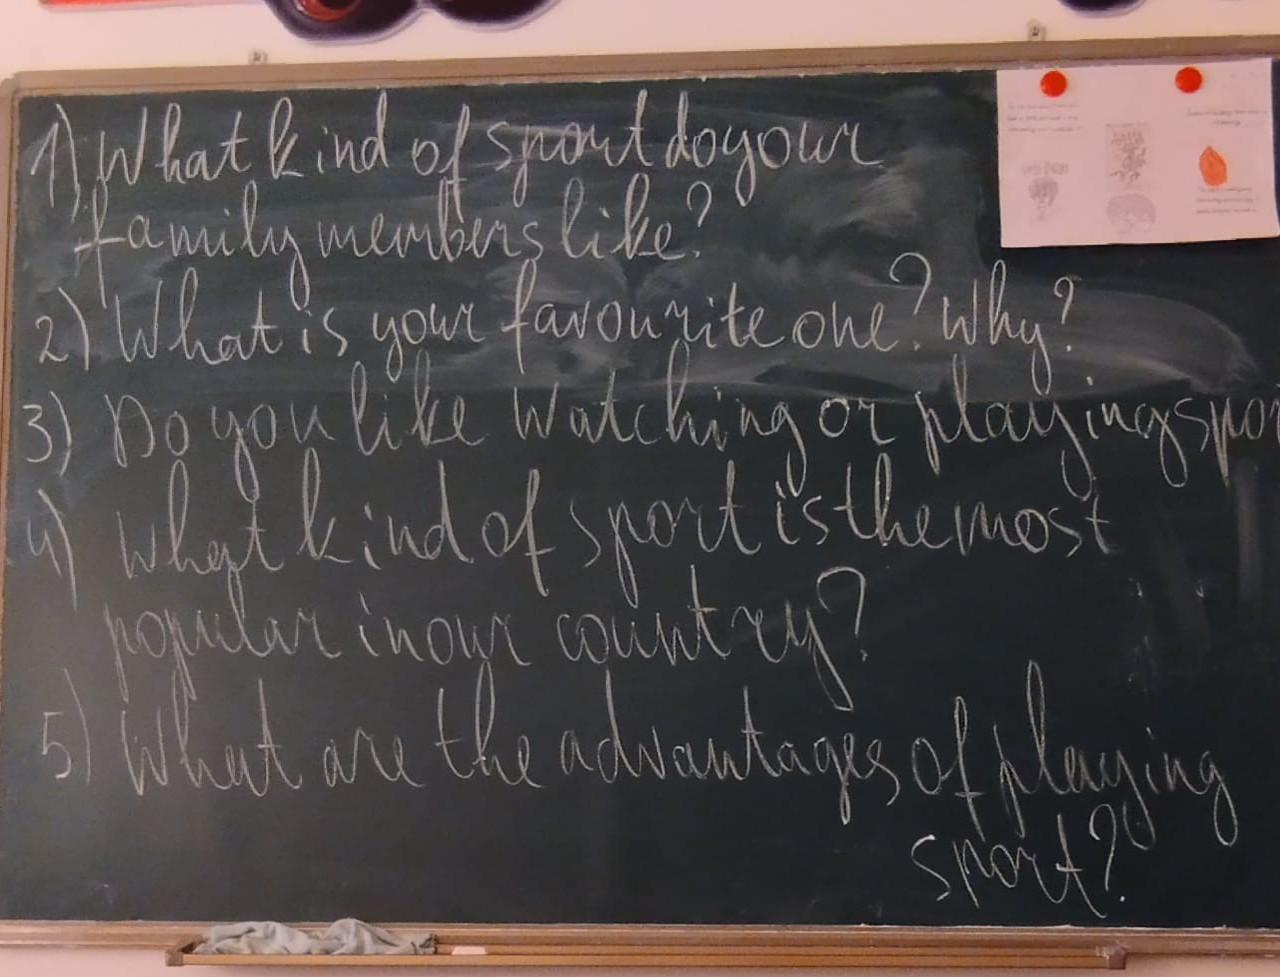 1) What kind of sport do your
family members like?
2) What is your favourite one? Why?
3) Do you like watching or playing spor
4) What kind of sport is the most
popular in our country?
5) What are the advantages of playing
sport?